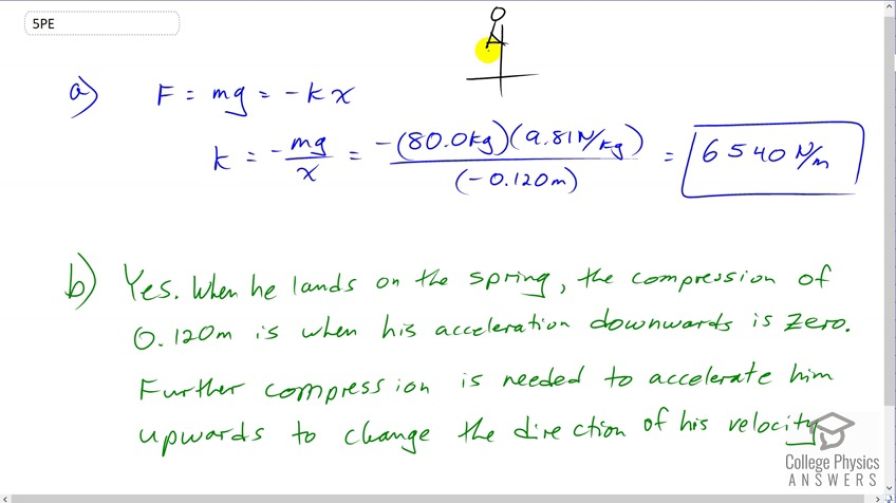 5PE
a) F = mg = -kx
k = -mg/x = -(80.0kg)(9.81N/kg)/(-0.120m) = 6540 N/m
b) Yes. When he lands on the spring, the compression of
0.120m is when his acceleration downwards is zero.
Further compression is needed to accelerate him
upwards to change the direction of his velocity
College Physics
ANSWERS